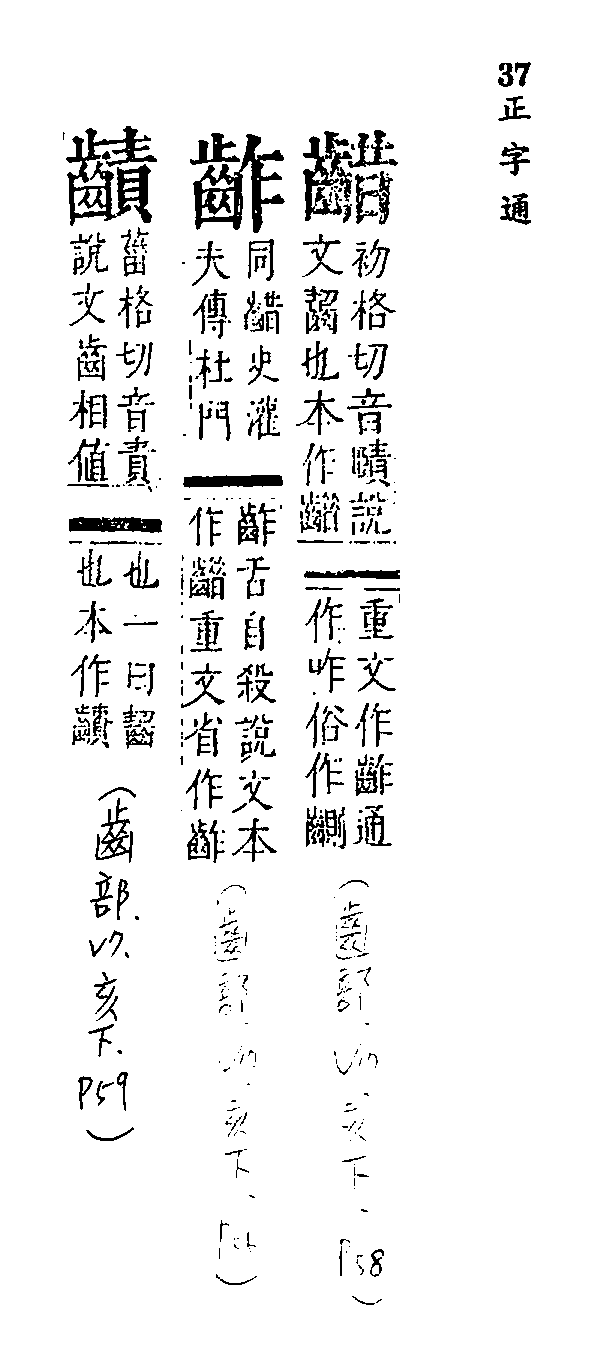 37正字通
齰
初格切音賾說
文齧也本作齰
重文作齚通
作咋俗作
(齒部.V7.亥下.P58)
齚
同齰史灌
夫傳杜門
齚舌自殺說文本
作齰重文省作齚
(齒部.V7.亥下.)
䶦
菑格切音責
說文齒相值
也一曰齧
也本作䶦
(齒部.V7.亥下.P59)